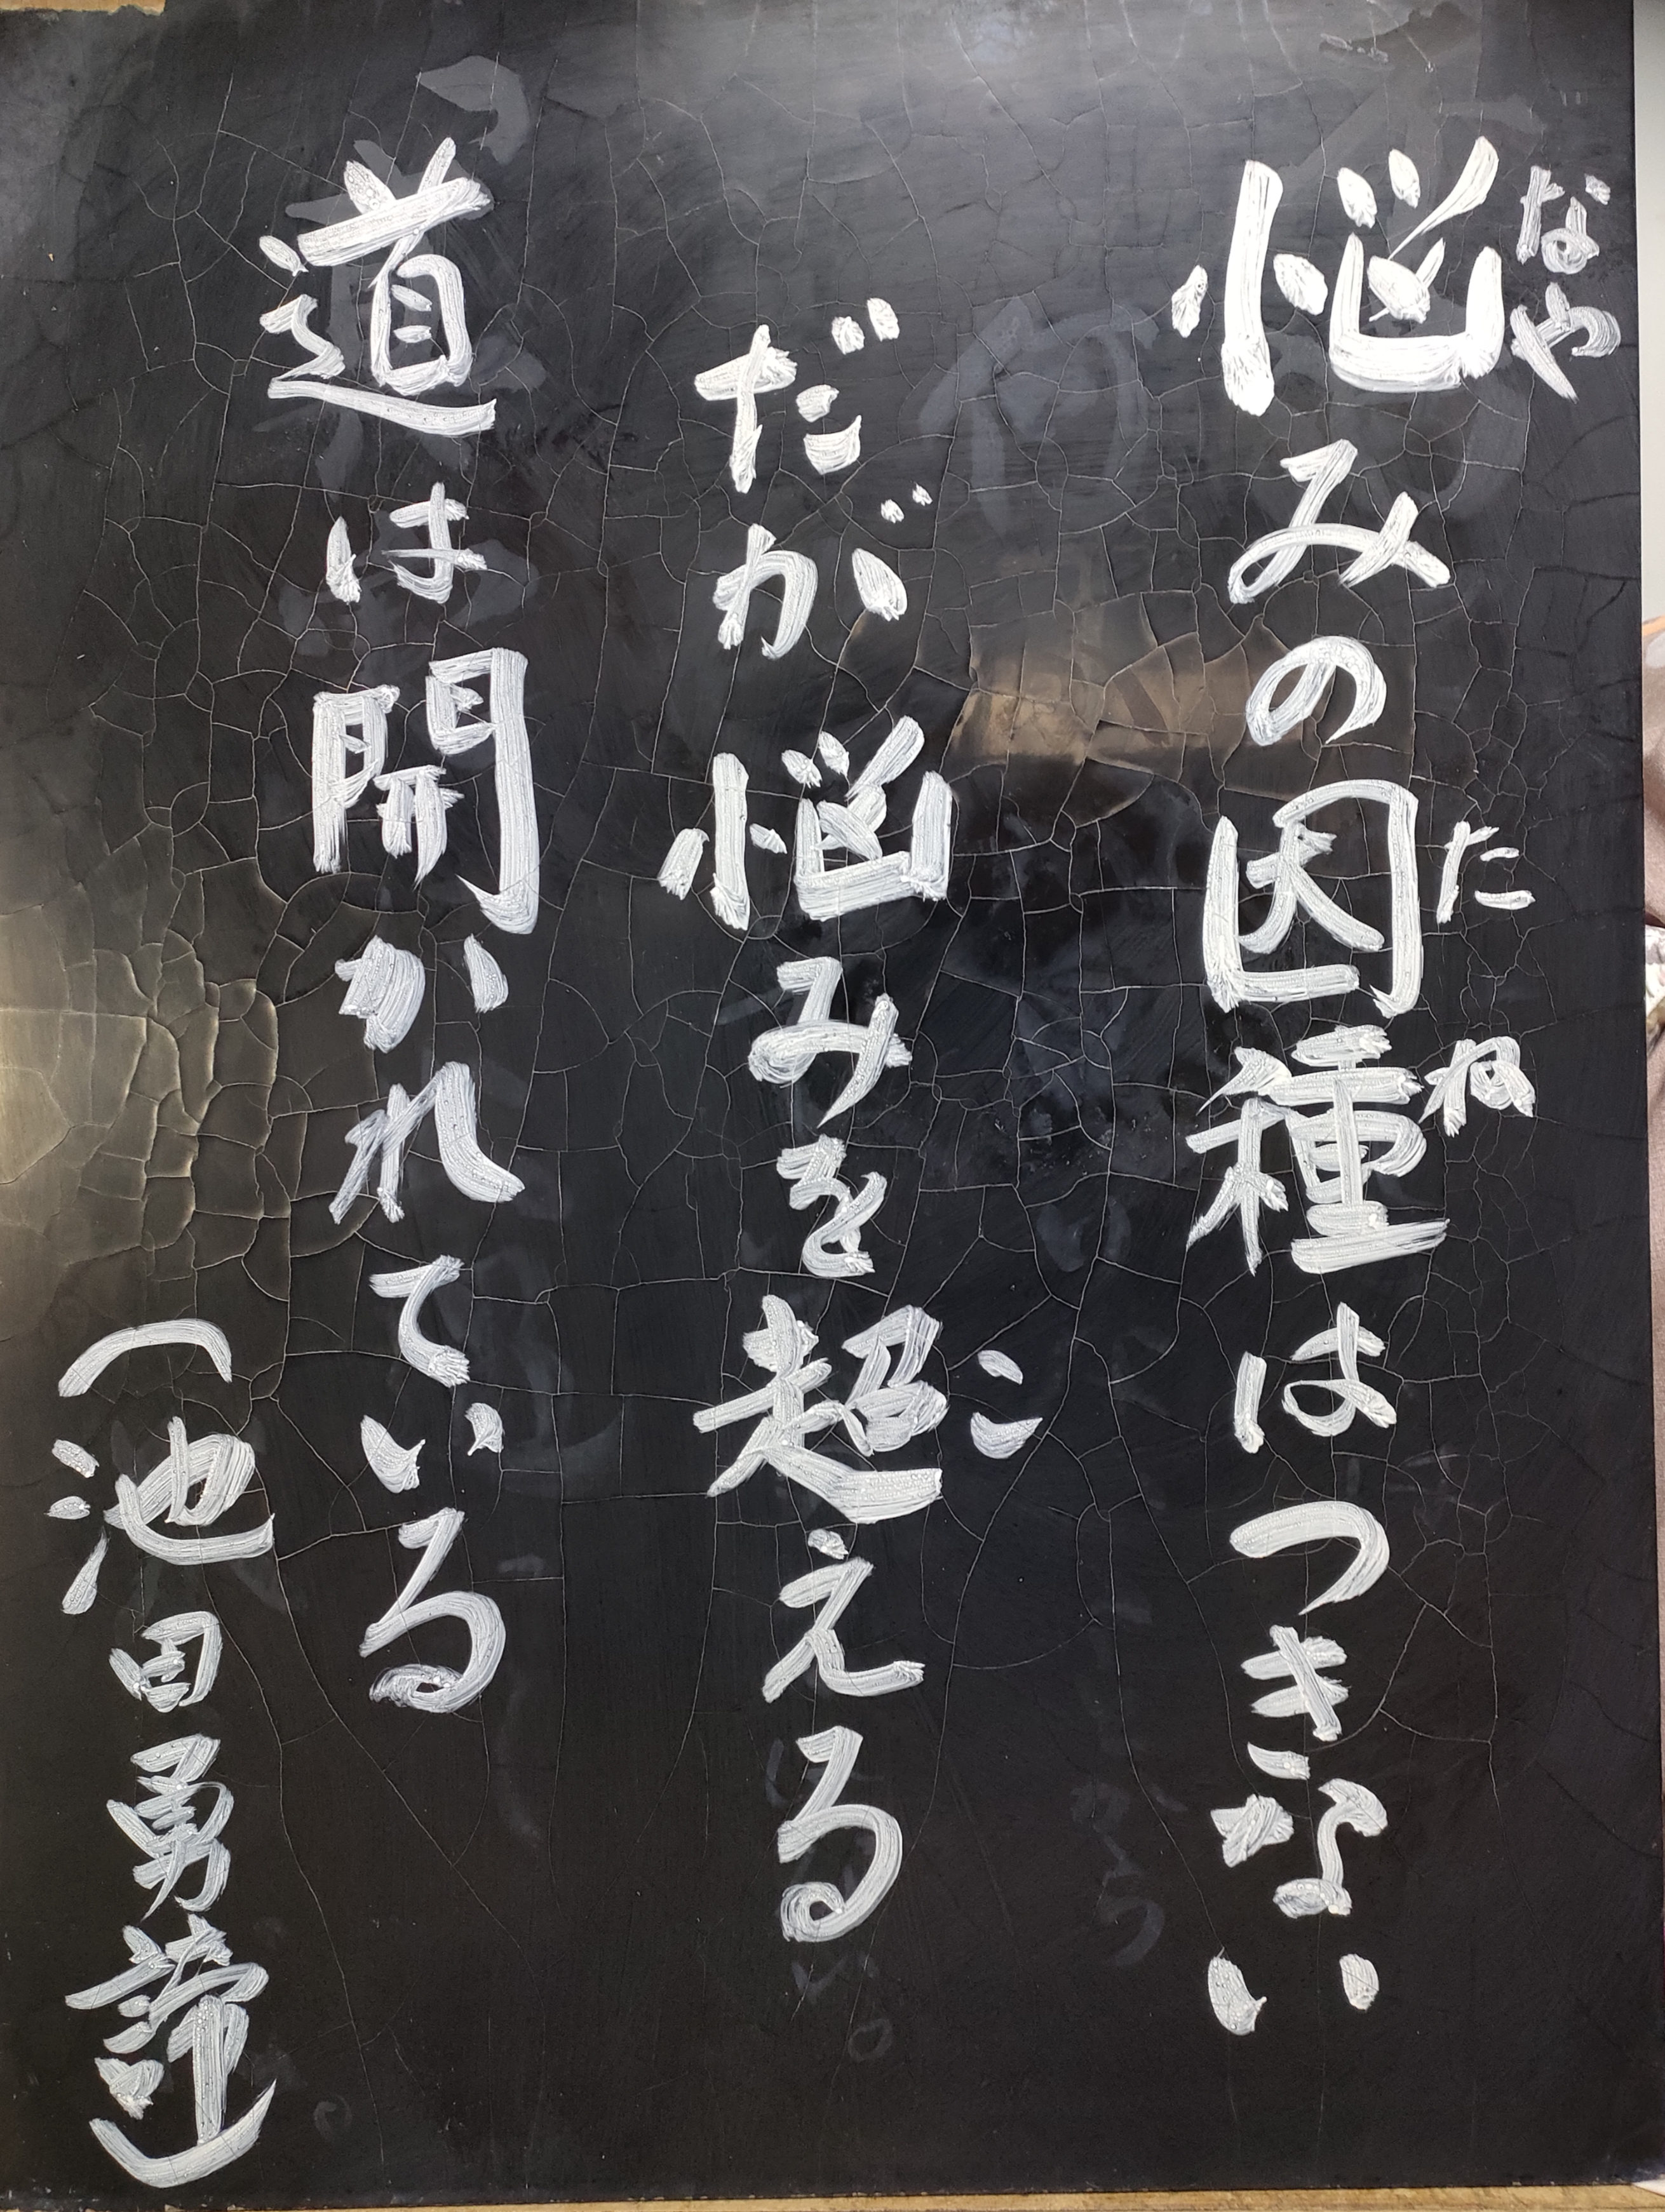 悩みの因種はつきない
なや
たね
だが悩みを超える
こ
道は開かれている
(池田勇諦)